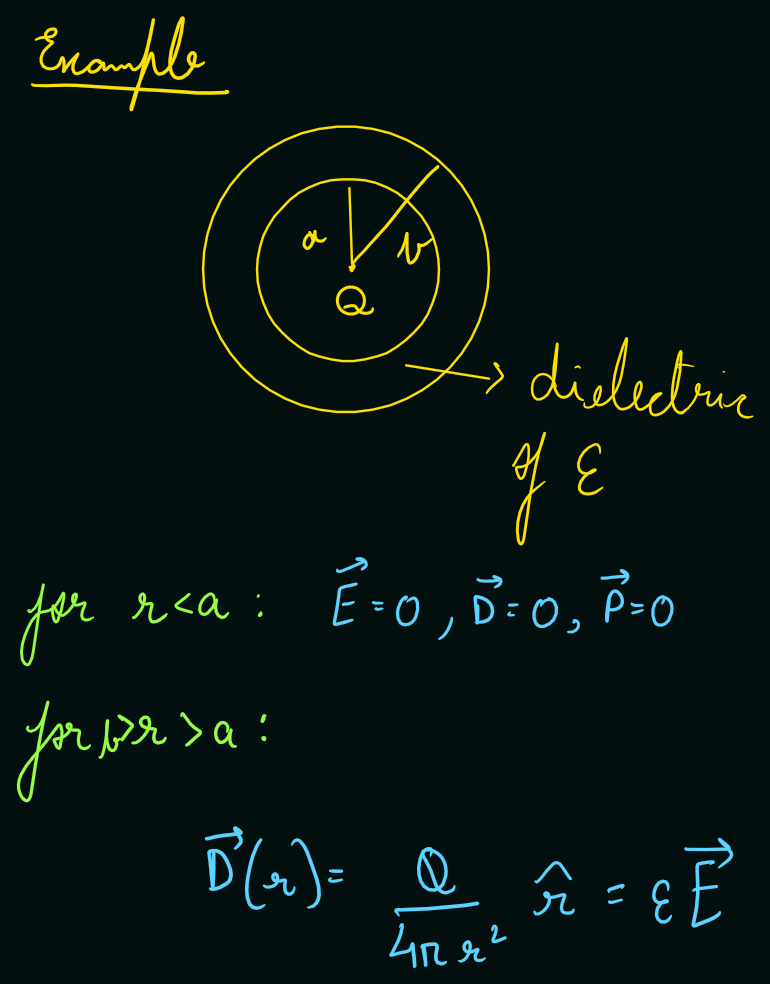 Example
a
b
Q
dielectric
of ε
for r<a : E⃗=0, D⃗=0, P⃗=0
for b>r>a :
D⃗(r)= Q/4πr² r̂ = εE⃗